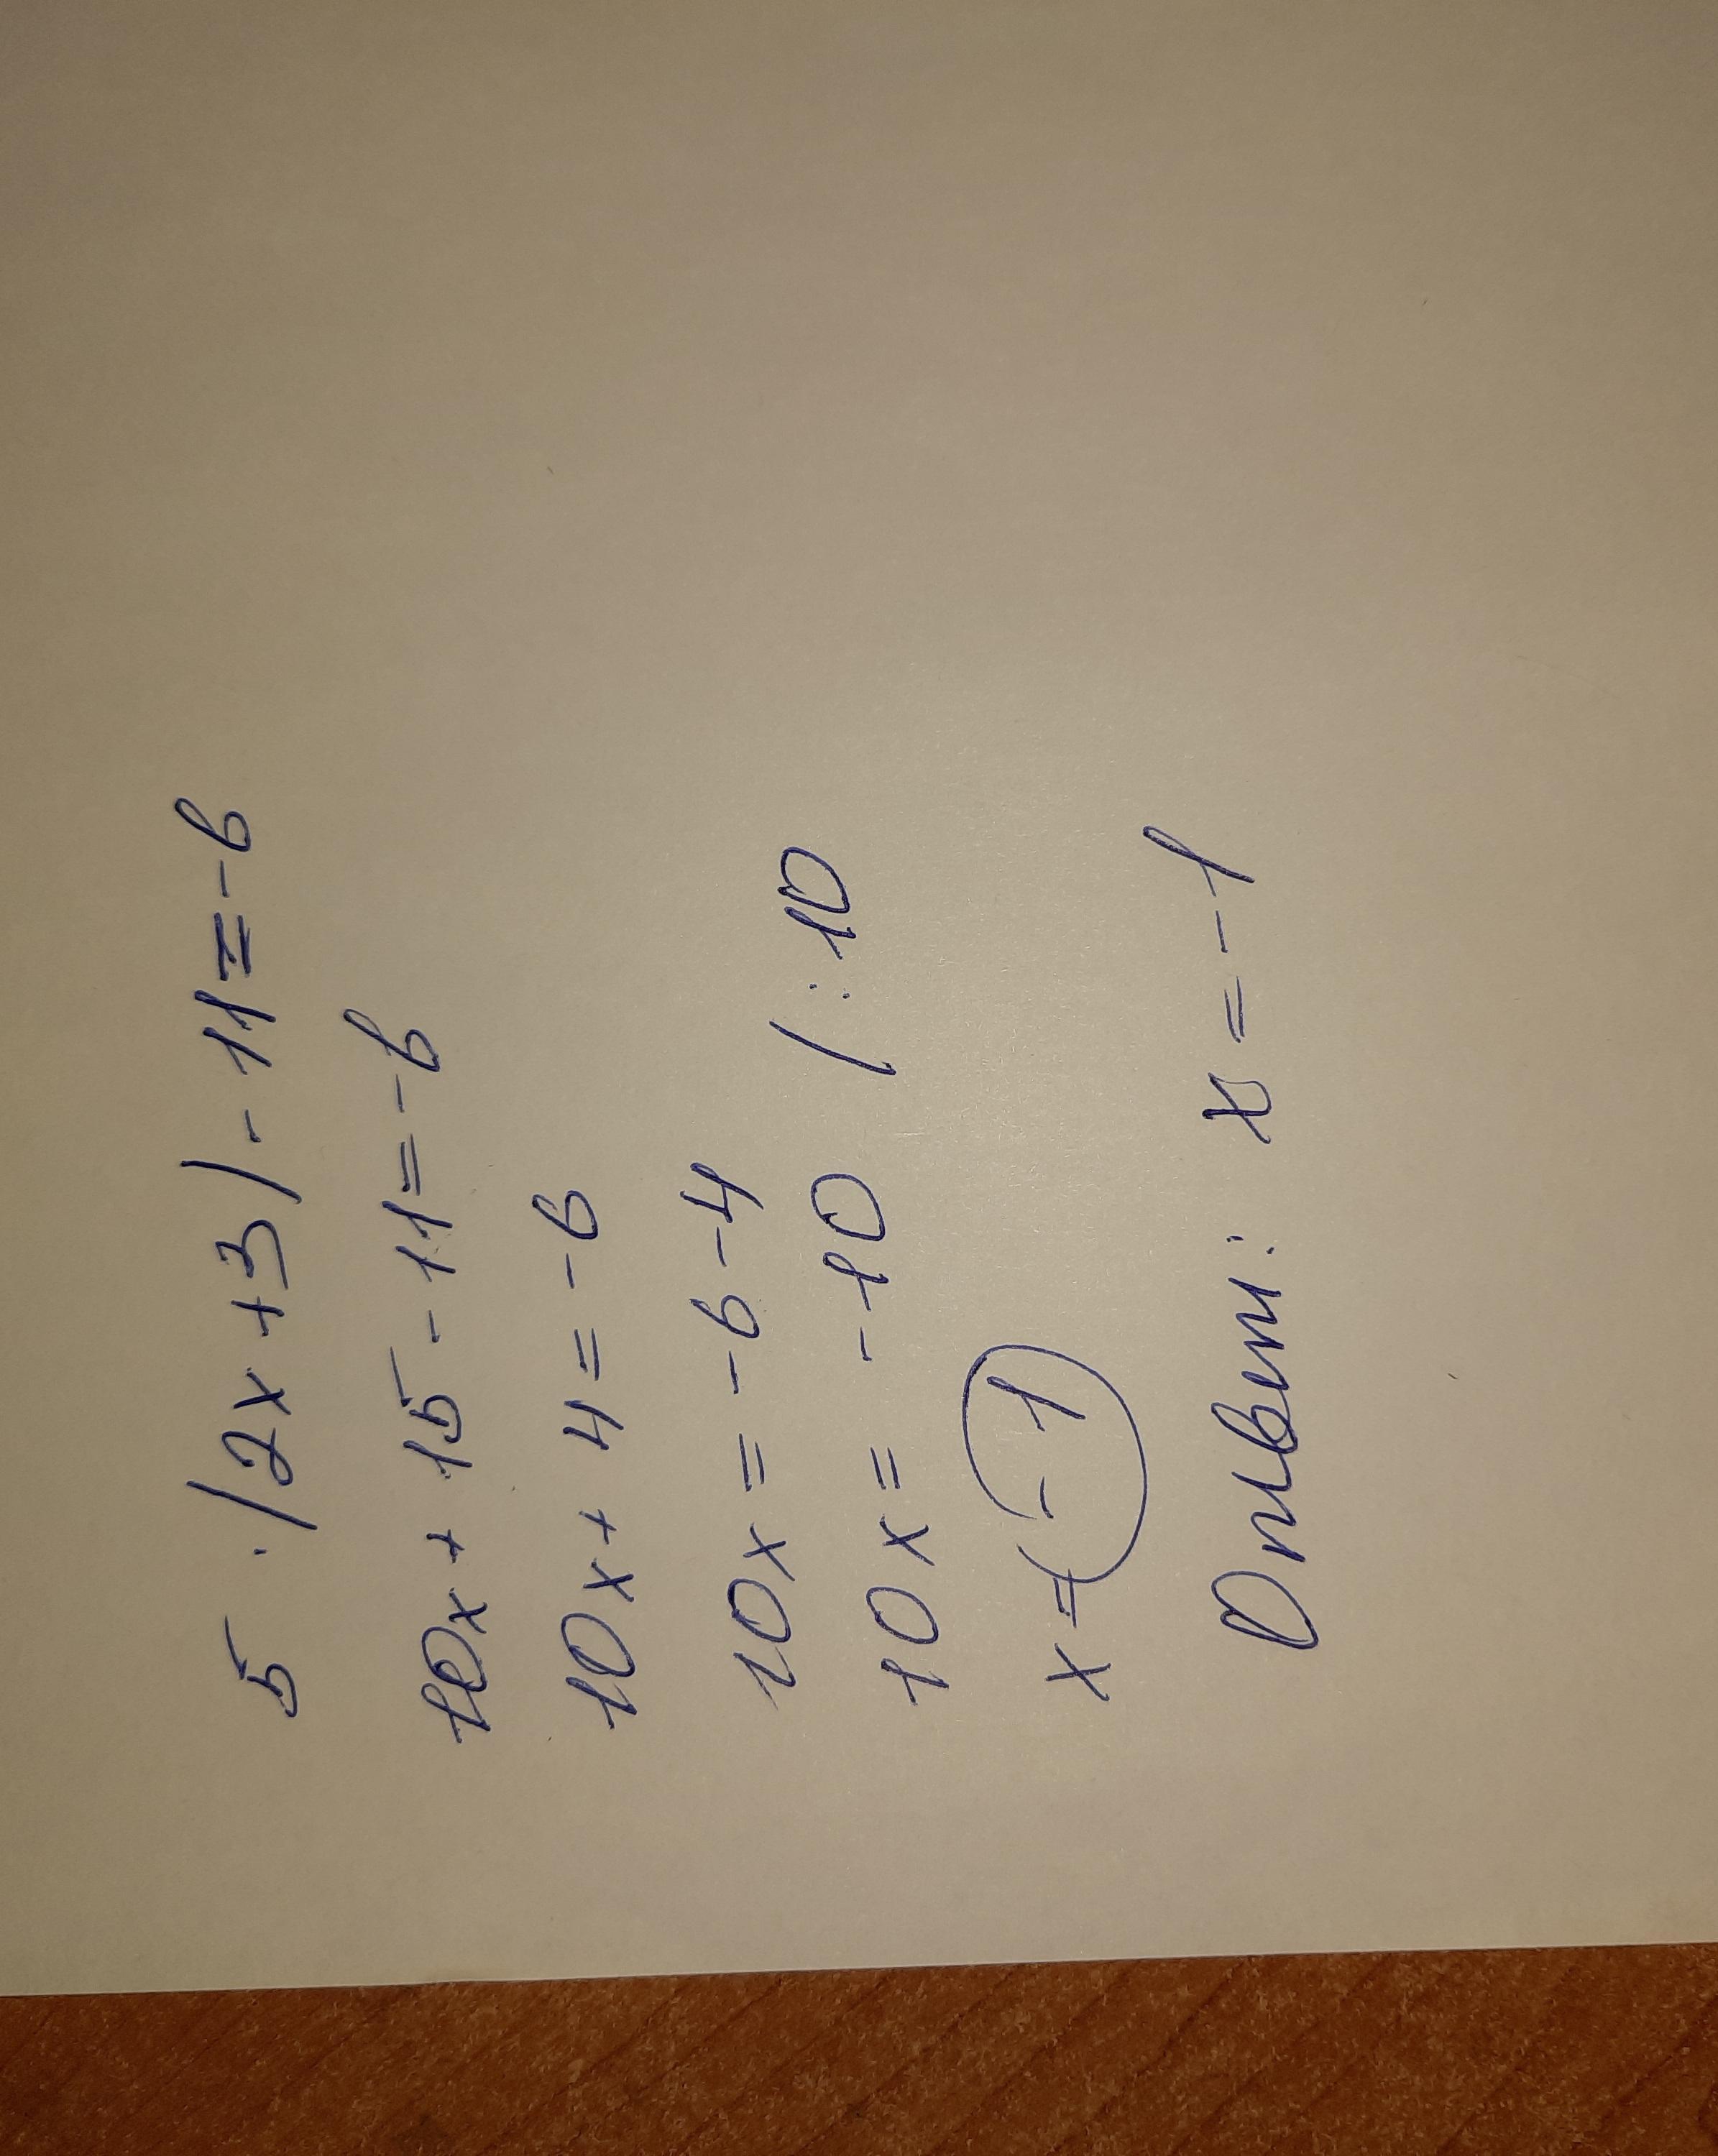 5 · (2x + 3) - 11 = -6
10x + 15 - 11 = -6
10x + 4 = -6
10x = -6 -4
10x = -10 / : 10
x = -1
Ответ: x = -1